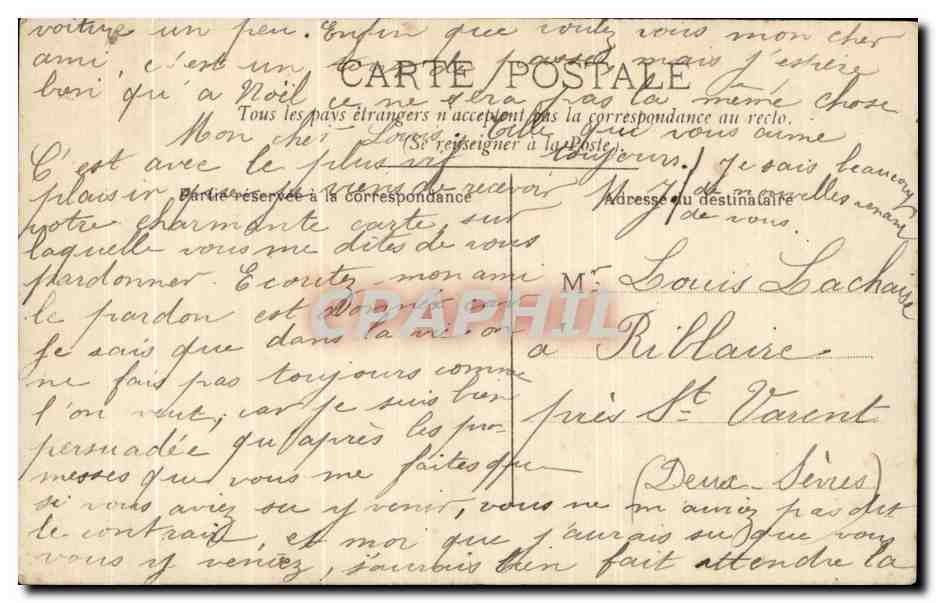 voiture un peu. Enfin que voulez vous mon cher
ami, c'est un temps de passé, mais j'espère
CARTE POSTALE
bien qu'à Noël ce ne sera pas la même chose
Tous les pays étrangers n'acceptent pas la correspondance au recto.
Mon cher Louis. Celle qui vous aime
(Se renseigner à la Poste).
toujours.
Je sais beaucoup
de nouvelles venant
de vous.
C'est avec le plus vif
plaisir que je viens de recevoir
Partie réservée à la correspondance
Adresse du destinataire
votre charmante carte, sur
laquelle vous me dites de vous
pardonner. Ecoutez, mon ami
le pardon est donné car
je sais que dans la vie on
ne fais pas toujours comme
l'on veut, car je suis bien
persuadée qu'après les pro-
messes que vous me faites que
si vous aviez su y venir, vous ne m'auriez pas dit
le contraire, et moi que j'aurais su que vous
vous y veniez, j'aurais bien fait attendre la
Mr Louis Lachaise
a Riblaire
près St Varent
(Deux-Sèvres)
CPAPHIL